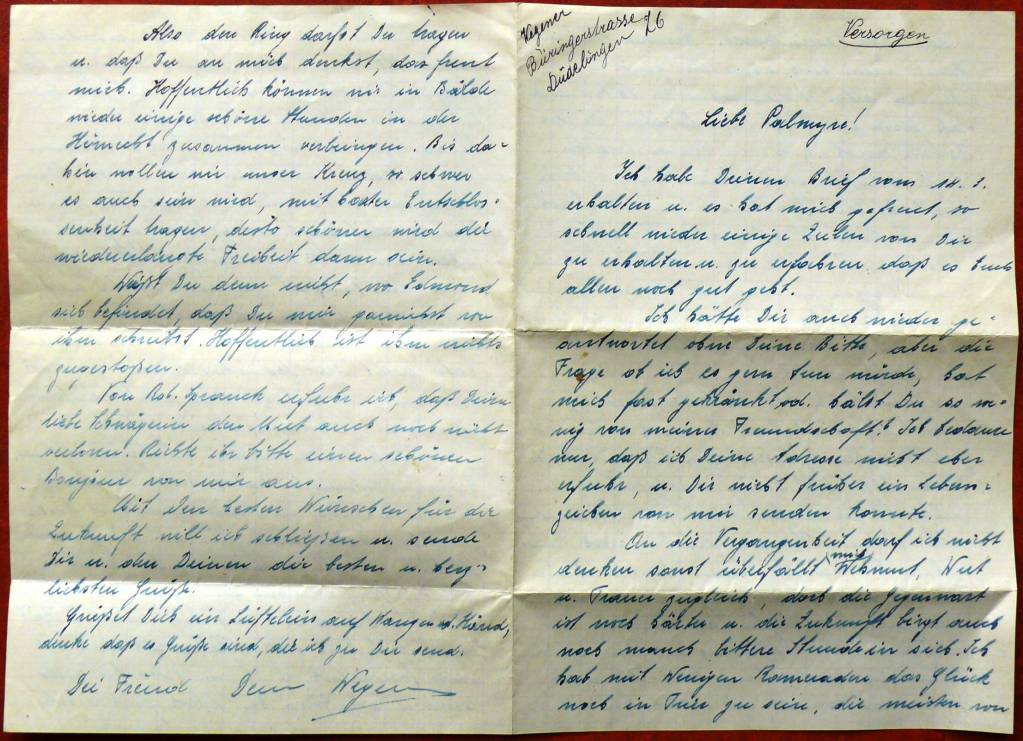 Wegener
Büringerstrasse 76
Düdelingen
Versorgen
Liebe Palmyre!
Ich habe Deinen Brief vom 14. 3.
erhalten u. es hat mich gefreut, so
schnell wieder einige Zeilen von Dir
zu erhalten u. zu erfahren daß es Euch
allen noch gut geht.
Ich hätte Dir auch wieder ge-
antwortet ohne Deine Bitte, aber die
Frage ob ich es gern tun würde, hat
mich fast gekränkt, od. hältst Du so we-
nig von meiner Freundschaft? Ich bedaure
nur, daß ich Deine Adresse nicht eher
erfuhr, u. Dir nicht früher ein Lebens-
zeichen von mir senden konnte.
An die Vergangenheit darf ich nicht
denken sonst überfällt mich Wehmut, Wut
u. Trauer zugleich, doch die Gegenwart
ist noch härter u. die Zukunft birgt auch
noch manch bittere Stunde in sich. Ich
hab mit Wenigen Kameraden das Glück
noch in Trier zu sein, die meisten von
Also den Ring darfst Du tragen
u. daß Du an mich denkst, das freut
mich. Hoffentlich können wir in Bälde
wieder einige schöne Stunden in der
zusammen verbringen. Bis da-
hin wollen wir unser Kreuz, so schwer
es auch sein wird, mit bester Entschlos-
senheit tragen, desto schöner wird die
wiedererlangte Freiheit dann sein.
Weißt Du denn nicht, wo Edmond
sich befindet, daß Du mir garnichst von
ihm schreibst. Hoffentlich ist ihm nichts
zugestoßen.
Von Rob. Spranck erfuhr ich, daß Deine
liebe Schwägerin den Mut auch noch nicht
verloren. Richte ihr bitte einen schönen
Bonjour von mir aus.
Mit Den besten Wünschen für die
Zukunft will ich schließen u. sende
Dir u. den Deinen die besten u. herz-
lichsten Grüße.
Grüßet Dich ein Lüftelein auf Wangen od. Händ,
denke daß es Grüße sind, die ich zu Dir send.
Dein Wegener